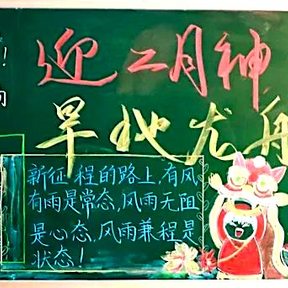 迎二月神
旱地龙舟
新征程的路上,有风
有雨是常态,风雨无阻
是心态,风雨兼程是
状态!